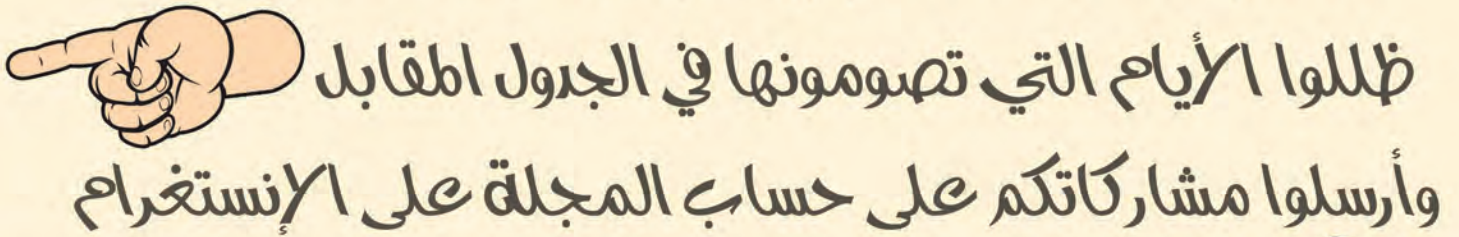 ظللوا الأيام التي تصومونها في الجدول المقابل
وأرسلوا مشاركاتكم على حساب المجلة على الإنستغرام